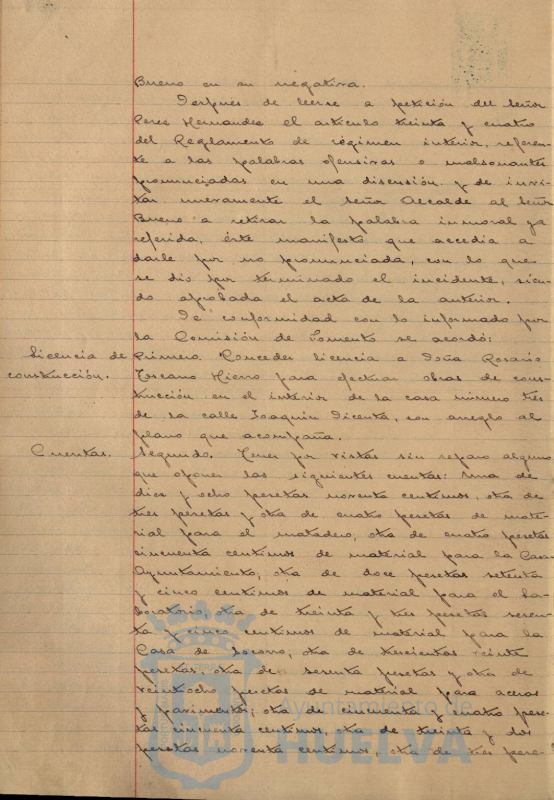 Bueno en su negativa.
Despues de leerse a petición del Señor
Perez Hernandez el artículo treinta y cuatro
del Reglamento de régimen interior, referen-
te a las palabras ofensivas o malsonantes
pronunciadas en una discusión y de invi-
tar nuevamente el Señor Alcalde al Señor
Bueno a retirar la palabra inmoral ya
referida, éste manifestó que accedia a
darle por no pronunciada, con lo que
se dio por terminado el incidente, sien-
do aprobada el acta de la anterior.
De conformidad con lo informado por
la Comisión de Fomento se acordó:
Licencia de construcción.
Primero. Conceder licencia a Doña Rosario
Toscano Hierro para efectuar obras de cons-
trucción en el interior de la casa número tres
de la calle Joaquin Dicenta, con arreglo al
plano que acompaña.
Cuentas.
Segundo. Tener por vistas sin reparo alguno
que oponer las siguientes cuentas: Una de
diez y ocho pesetas noventa centimos, otra de
tres pesetas y otra de cuatro pesetas de mate-
rial para el matadero, otra de cuatro pesetas
cincuenta centimos de material para la Casa
Ayuntamiento; otra de doce pesetas setenta
y cinco centimos de material para el La-
boratorio; otra de treinta y tres pesetas sesen-
ta y cinco centimos de material para la
Casa de Socorro, otra de trescientas veinte
pesetas, otra de sesenta pesetas y otra de
veintiocho pesetas de material para aceras
y pavimentos; otra de cincuenta y cuatro pese-
tas cincuenta centimos, otra de treinta y dos
pesetas noventa centimos, otra de tres pese-
Ayuntamiento de
HUELVA